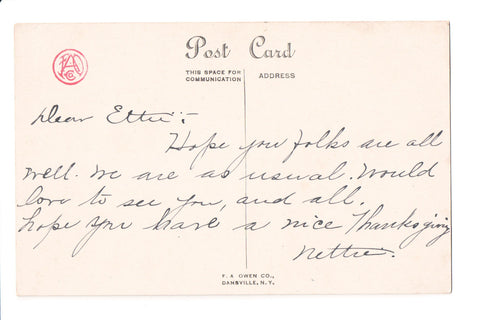 Post Card
THIS SPACE FOR
COMMUNICATION
ADDRESS
Dear Ettie:-
Hope you folks are all
well. We are as usual. Would
love to see you, and all.
hope you have a nice Thanksgiving
Nettie.
F. A. OWEN CO.,
DANSVILLE, N. Y.